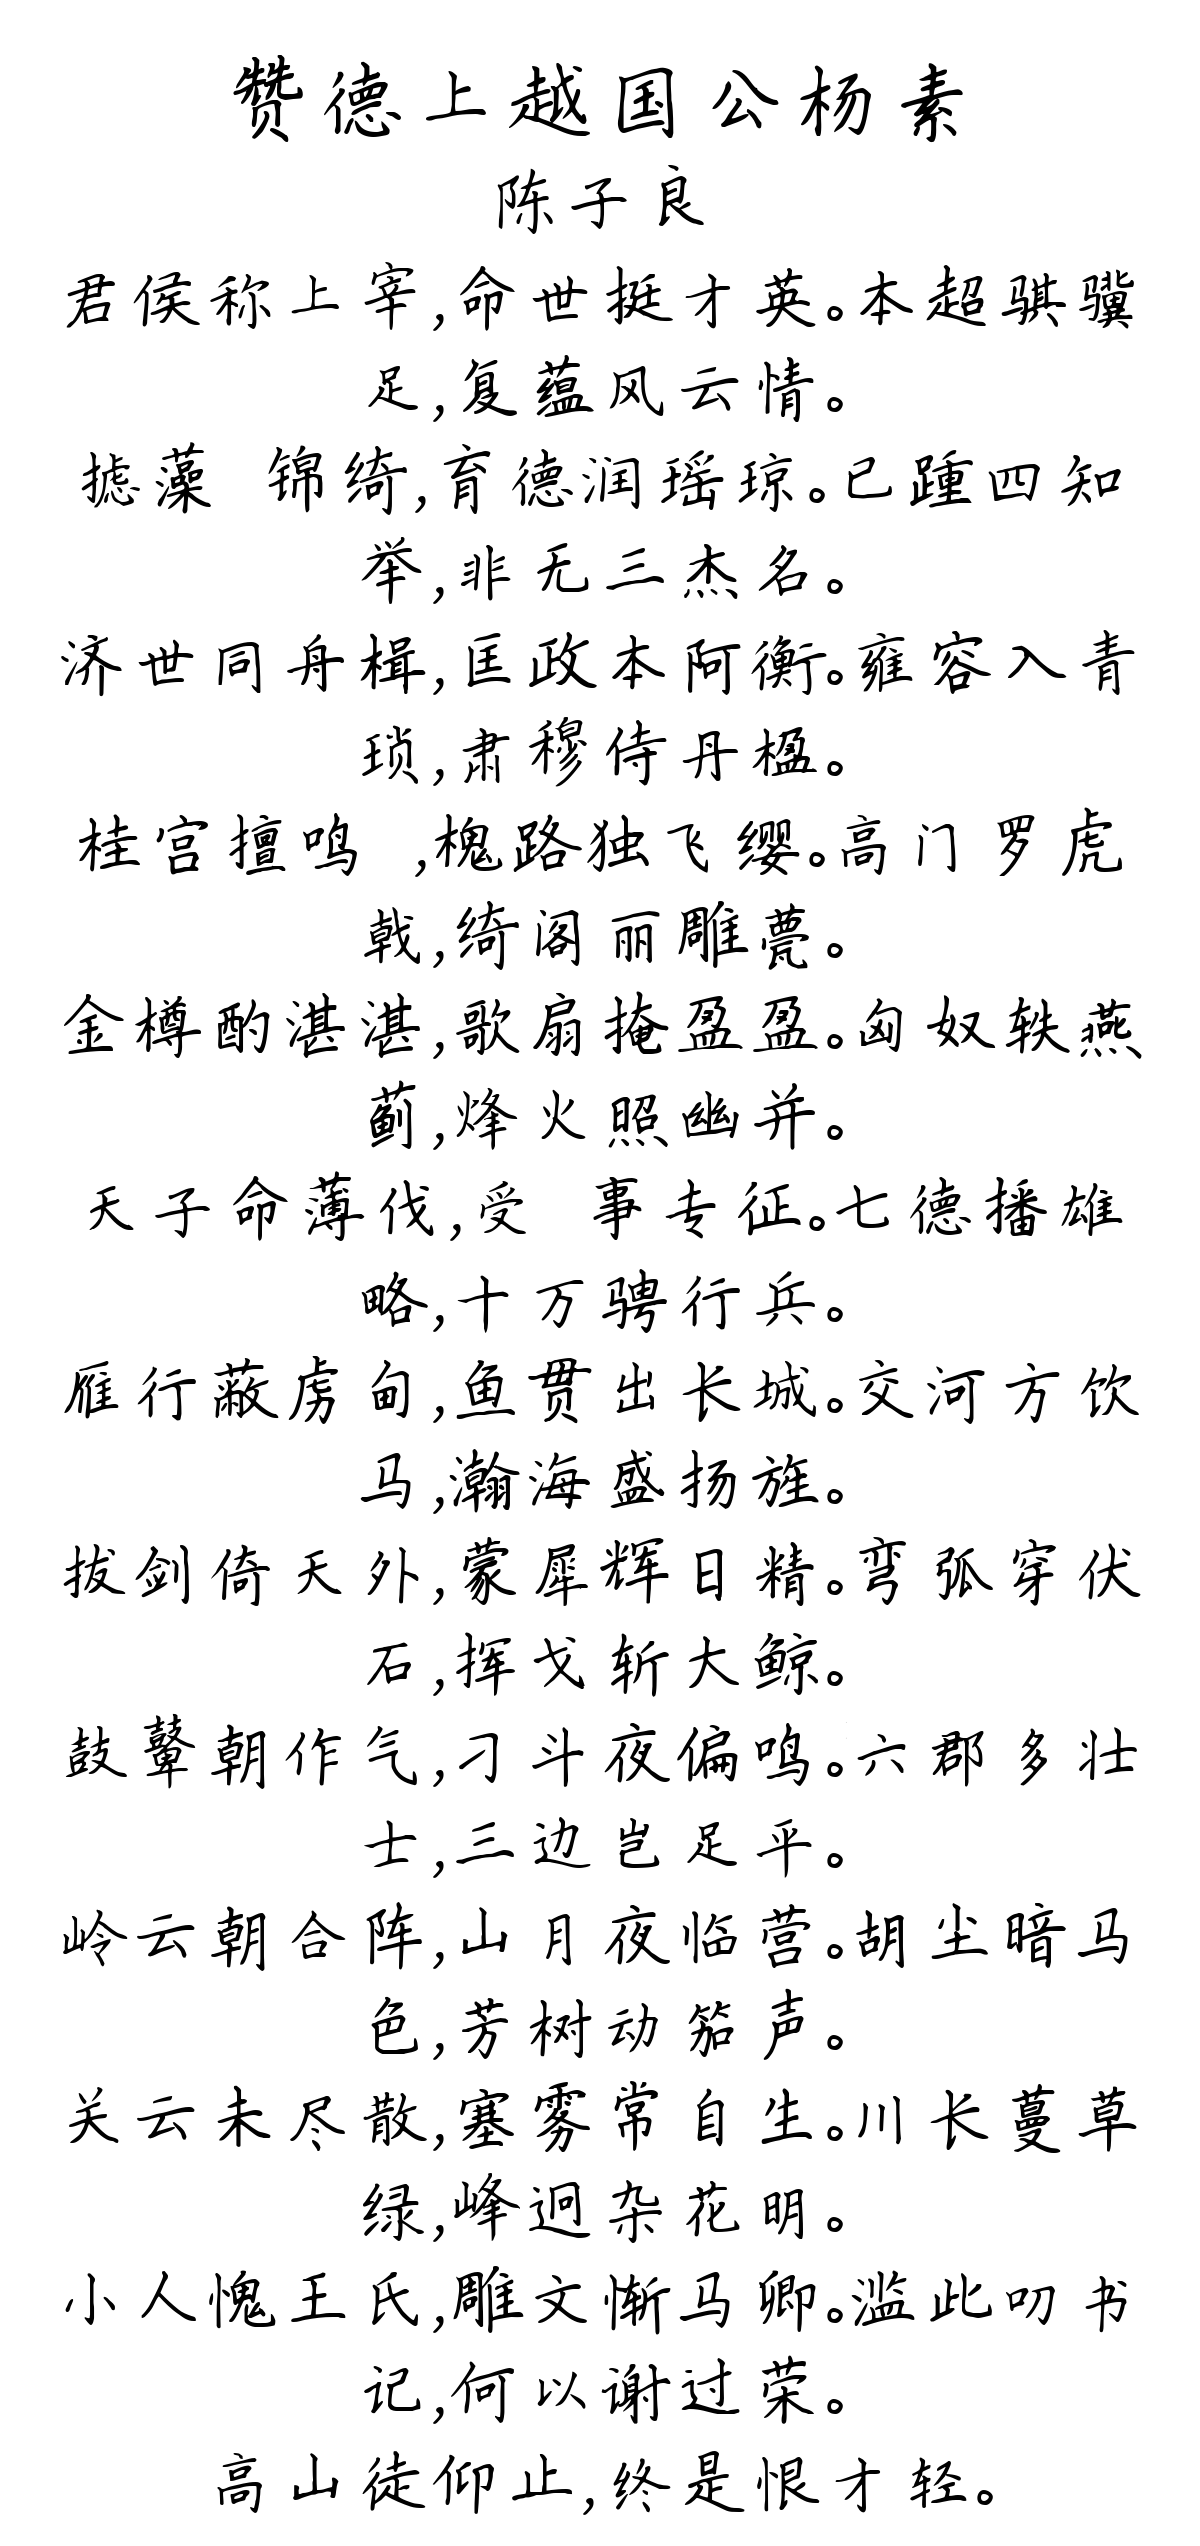 赞德上越国公杨素
陈子良
君侯称上宰,命世挺才英。本超骐骥
足,复蕴风云情。
摅藻 锦绮,育德润瑶琼。已踵四知
举,非无三杰名。
济世同舟楫,匡政本阿衡。雍容入青
琐,肃穆侍丹楹。
桂宫擅鸣 ,槐路独飞缨。高门罗虎
戟,绮阁丽雕甍。
金樽酌湛湛,歌扇掩盈盈。匈奴轶燕
蓟,烽火照幽并。
天子命薄伐,受 事专征。七德播雄
略,十万骋行兵。
雁行蔽虏甸,鱼贯出长城。交河方饮
马,瀚海盛扬旌。
拔剑倚天外,蒙犀辉日精。弯弧穿伏
石,挥戈斩大鲸。
鼓鼙朝作气,刁斗夜偏鸣。六郡多壮
士,三边岂足平。
岭云朝合阵,山月夜临营。胡尘暗马
色,芳树动笳声。
关云未尽散,塞雾常自生。川长蔓草
绿,峰迥杂花明。
小人愧王氏,雕文惭马卿。滥此叨书
记,何以谢过荣。
高山徒仰止,终是恨才轻。